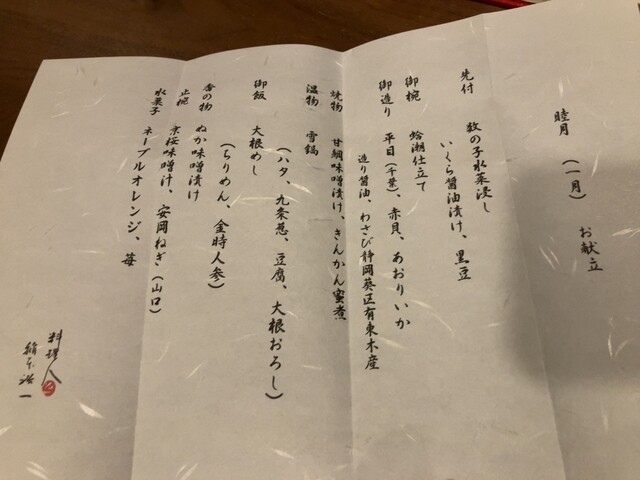 睦月 (一月) お献立
先付 数の子水菜浸し
いくら醤油漬け、黒豆
御椀 蛤潮仕立て
御造り 平目(千葉)、赤貝、あおりいか
造り醤油、わさび静岡葵区有東木産
焼物 甘鯛味噌漬け、きんかん蜜煮
温物 雪鍋
(ハタ、九条葱、豆腐、大根おろし)
御飯 大根めし
(ちりめん、金時人参)
香の物 ぬか味噌漬け
止椀 京桜味噌汁、安岡ねぎ(山口)
水菓子 ネーブルオレンジ、苺
料理人
一